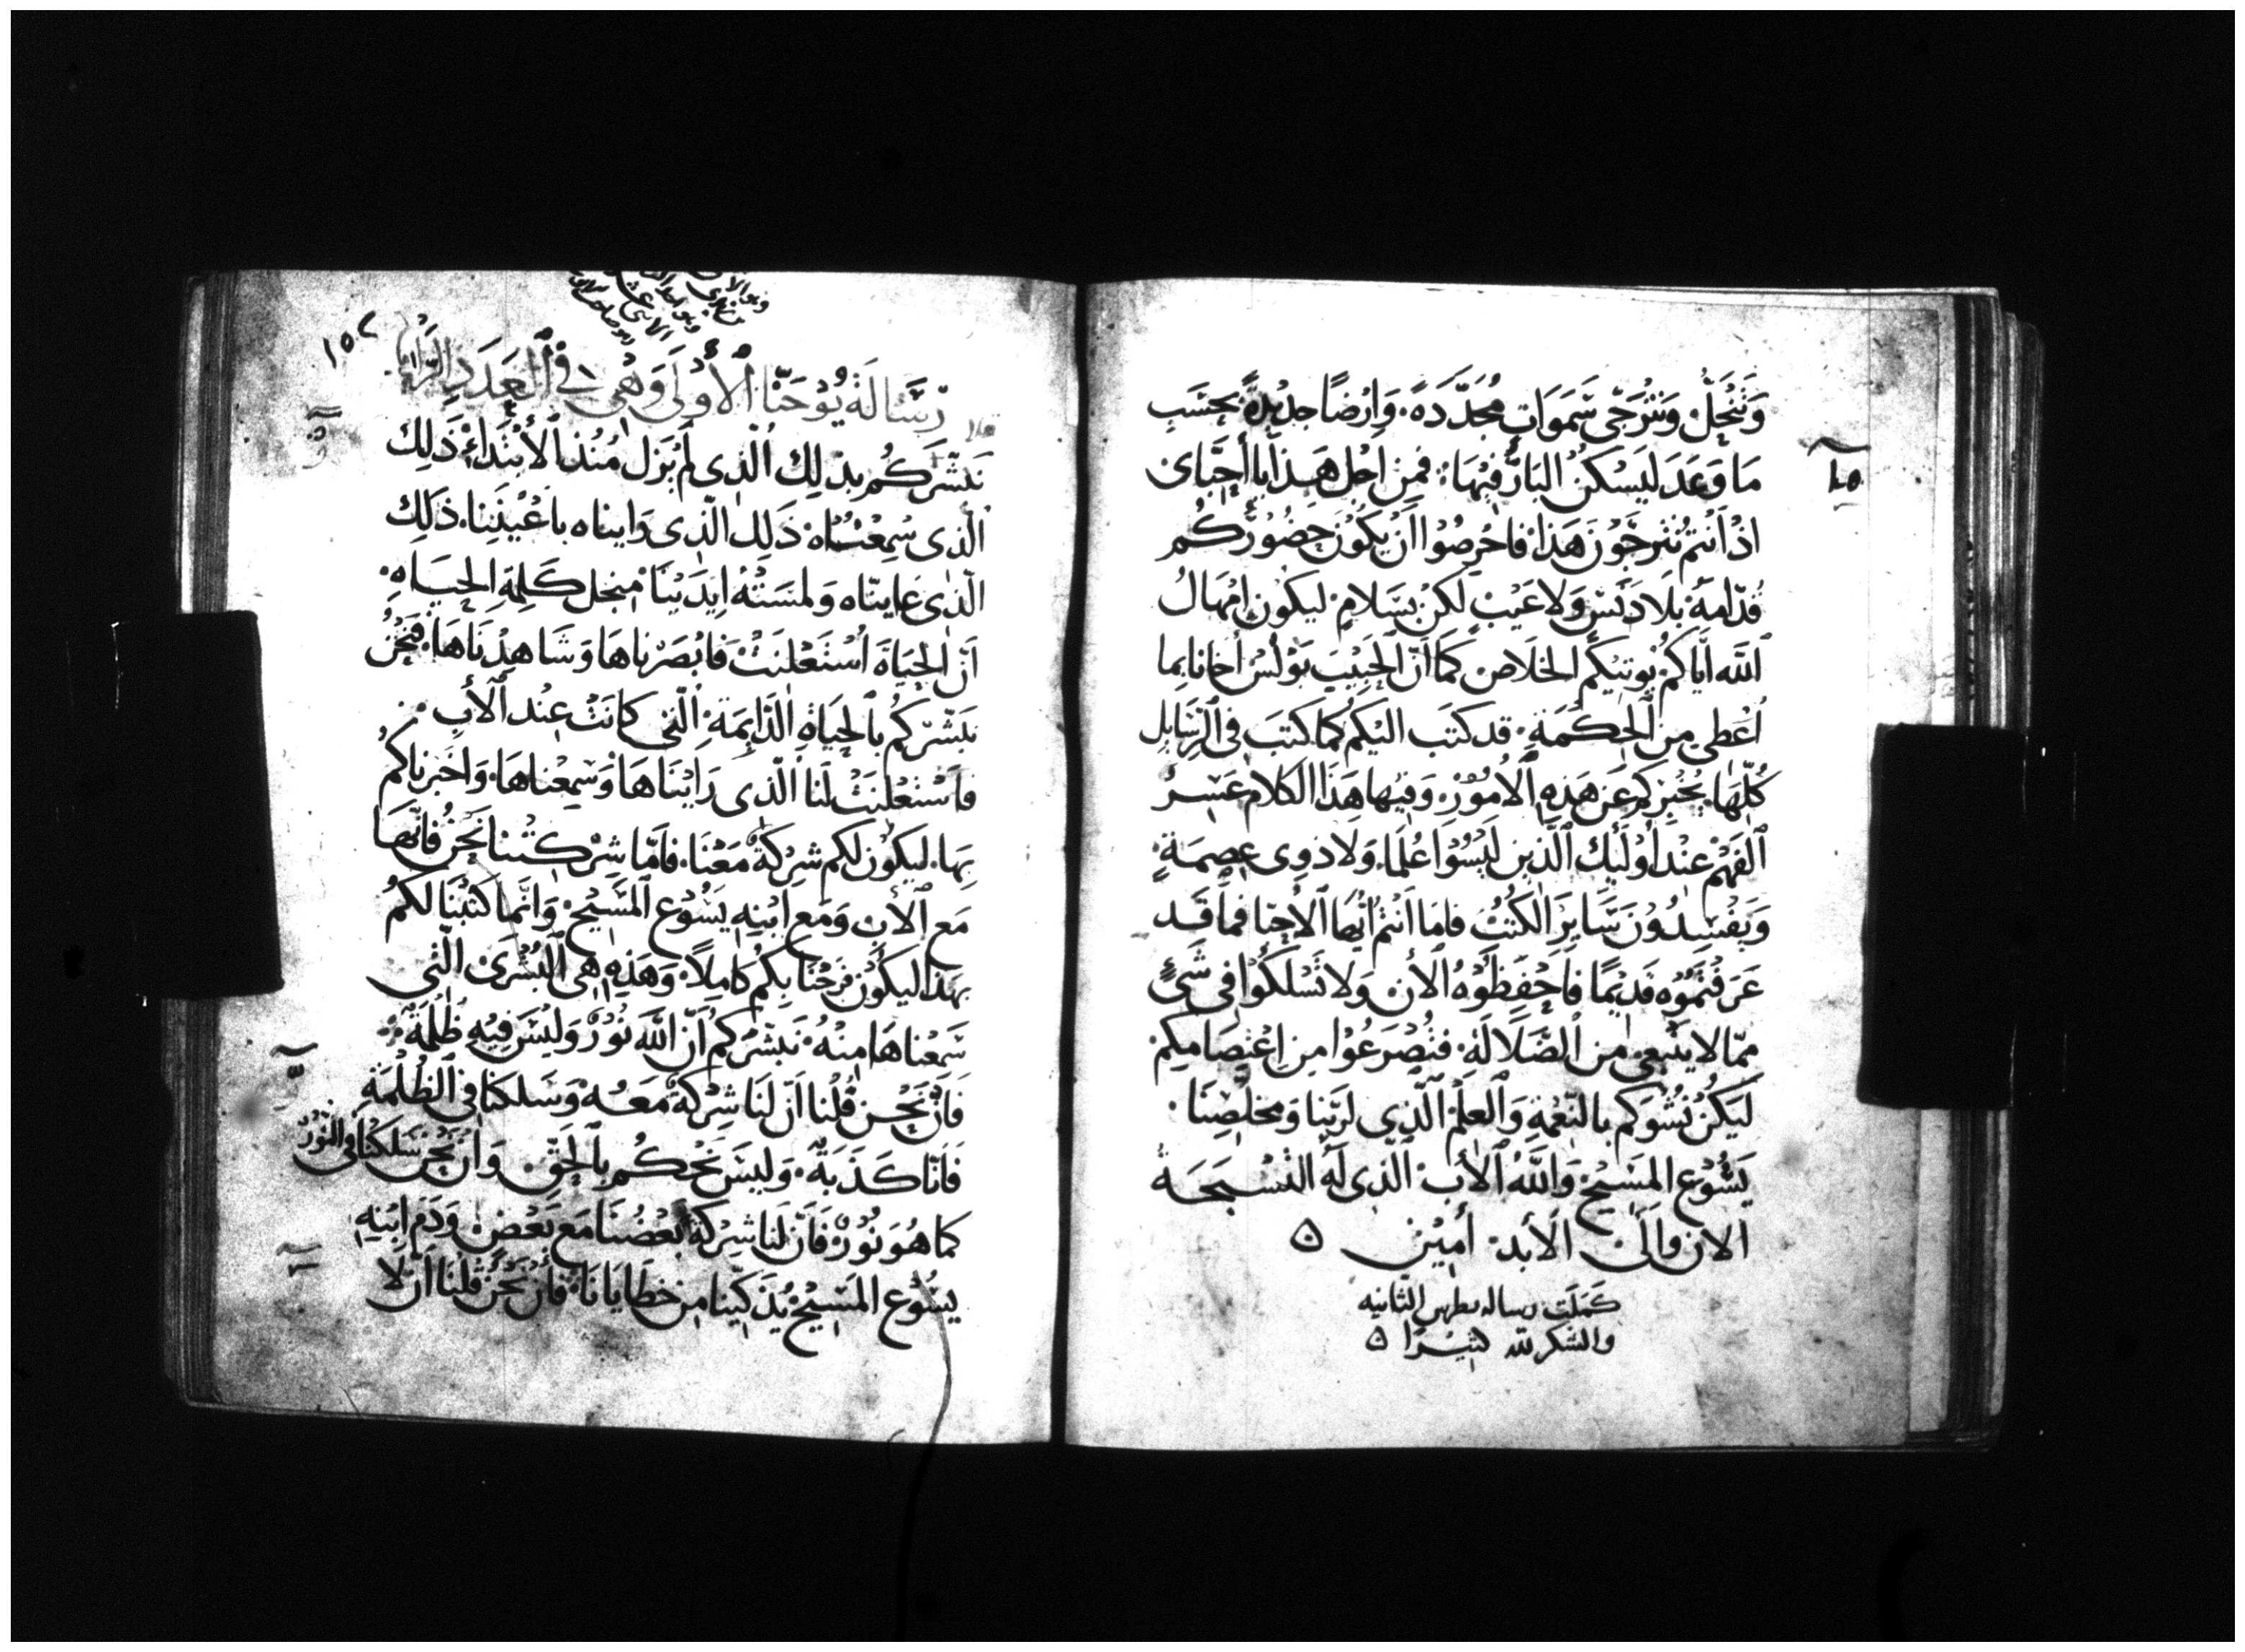 وَتَنْحَلّ وَنَتَرَجَّى سَمَوَاتٍ مُجَدَّدَةً. وَارْضًا جَدِيْدَةً بِحَسَبِ
مَا وَعَدَ لِيَسْكُنُ البَارُّ فِيْهَا. فَمِنْ اجْلِ هَذَا يَا أَحِبَّاىَ
اذْ اَنْتُمْ تَتَرَجَّوْنَ هَذَا فَاحْرِصُوْا اَنْ يَكُوْنَ حُضُوْرُكُمْ
قُدَّامَهُ بِلَا دَنَسٍ وَلَا عَيْبٍ لَكِنْ بِسَلَامٍ لِيَكُوْنَ امْهَالُ
اللَّه ايَّاكُمْ يُوتِيْكُم الخَلَاصَ كَمَا اَنَّ الحَبِيْبَ بَوْلُسَ أَخَانَا بِمَا
اُعْطِىَ مِنَ الحِكْمَةِ. قد كَتَبَ اليْكُم كَمَا كَتَبَ فِى الرَّسَايِلِ
كُلِّهَا. يُخْبِرُكُمْ عَنْ هَذِهِ الْاُمُوْرِ. وَفِيْهَا هَذَا الكَلَام عَسِرُ
الفَهْمِ عِنْدَ اُوْلَيْكَ الَّذِين لَيْسُوْا عُلَمَا. وَلَا ذَوِى عِصمَةٍ
وَيُفْسِدُوْنَ سَايِرَ الكُتُبِ فَامَا اَنْتُمْ اَيُّهَا الاحِبَّا فَمَا قَد
عَرَفْتُمُوْه قَدِيْمًا فَاحْفَظُوْهُ الْأَنَ وَلَا تَسْلُكُوْا فِى شَىْءٍ
مِمَّا لَا يَنْبَغِى مِن الضَّلَالَةِ. فَتُصْرَعُوْا مِن اِعْتِصَامِكُمْ
لَيَكُنْ نُشُوكُم بالنّعْمَةِ وَالعِلْمِ الَّذِى لِرَبّنا وَمُخَلِّصِنَا
يَسُوْع المَسِيْحِ وَاللَّهِ الْأَبِ الَّذِى لَهُ التَسْبِحَةُ
الان وَالَى الْأَبد أَمِيْن ۞
كَمَلَتْ رساله بطرس الثّانيه
والشكر للّه كَثِيْرًا
١٥٢
رِسَالَةُ يُوْحَنَّا الْأُوْلَى وَهِىَ فِى العَدَدِ الرَّابِعِ
نُبَشِّرَكُم بِذلِكَ الَّذِى لَمْ يَزل مُنْذ الْأِبْتِدَاءِ ذَلِكَ
الَّذِى سَمِعْنَاه ذَلِك الَّذِى رَايناه بِاعْيُنِنَا. ذَلِكَ
الَّذِى عَايَنَّاه وَلَمَسَتْهُ اَيْدَيْنَا مِنجل كَلِمَةِ الحَيَاةِ.
اَنَّ الحَيَاةَ اُسْتَعْلَنَتْ فَابْصَرْنَاهَا وَشَاهَدْنَاهَا. فَنَحْنُ
نُبَشِّرُكُم بِالحَيَاةِ الدَّايِمَةِ الَّتِى كَانَتْ عِنْدَ الْأَبِ.
فَاسْتَعْلَنَتْ لَنَا الَّذِى رَايْنَاهَا وَسَمِعْنَاهَا. وَاخْبَرْنَاكُمْ
بِهَا. لِيَكُوْنَ لَكُم شِرْكَةٌ مَعَنَا. فَامَّا شِرْكَتُنَا نَحْنُ فَانَّهَا
مَع الْأَبِ وَمَع ابْنِهِ يَسُوْع المَسِيْحِ. وَانَّمَا كَتَبْنَا لَكُمْ
بِهَذَا لِيَكُوْن فَرَحُنَا بِكُمْ كَامِلًا. وَهَذِه هِىَ البُشْرَى الَّتِى
سَمِعْنَاهَا مِنْهُ. نُبَشِّرُكُمْ اَنَّ اللَّهَ نُوْرٌ وَلَيْسَ فِيْهِ ظُلْمَةٌ
فَانْ نَحْن قُلْنَا اَنّ لَنَا شِرْكَةٌ مَعَهُ وَسَلَكْنَا فِى الظُّلْمَةِ
فَانَّا كَذَبَةٌ. وَلَيْسَ نَحْكُم بِالحَقِّ. وَانْ نَحْن سَلَكْنَا فِى النُّوْرِ
كَمَا هُوَ نُوْرٌ فَاَنَّ لَنَا شِرْكَةً بَعْضُنَا مَع بَعْضٍ وَدَمُ ابْنِهِ
يَسُوْع المَسِيْحِ يُذَكِّيْنَا مِن خَطَايَانَا. فَأِنْ نَحْنُ قُلْنَا اَنْ لَا